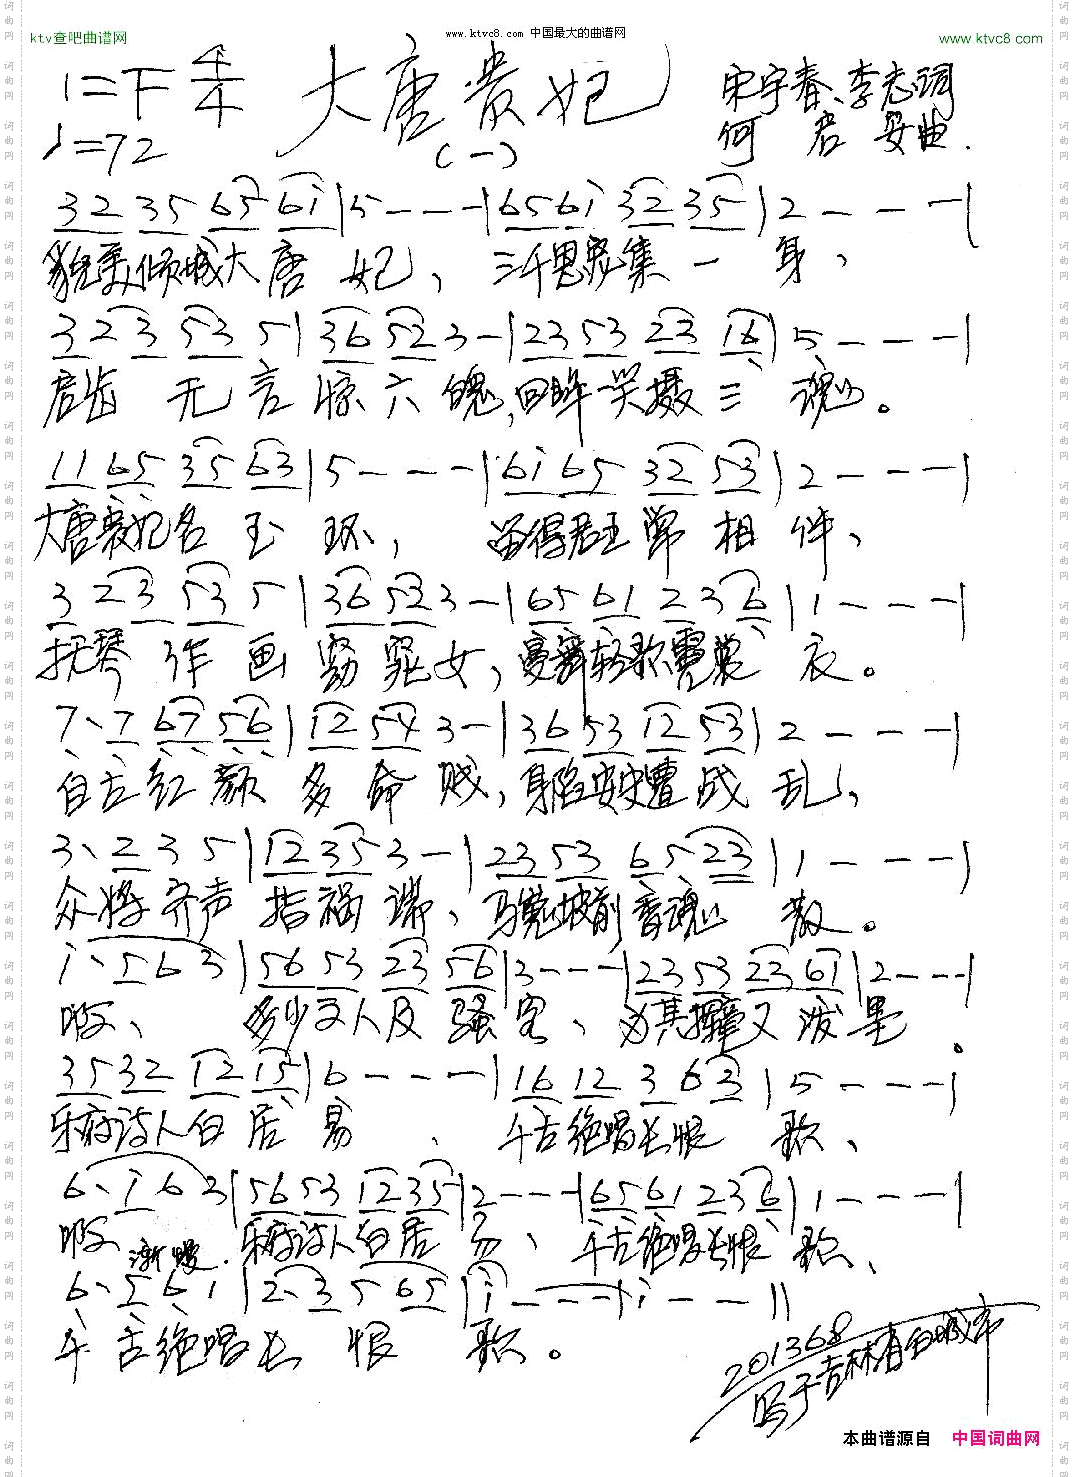 ktv查吧曲谱网
www.ktvc8.com 中国最大的曲谱网
www.ktvc8.com
1=下 4/4 大唐贵妃 宋宇春、李志词
=72 (一) 何君安曲.
32 35 65 6i | 5 - - - | 65 6i 32 35 | 2 - - - |
貌美倾城大唐妃、三千恩宠集一身、
3 2 3 53 5 | 36 52 3 - | 23 53 23 16 | 5 - - - |
启齿无言惊六魄,回眸一笑摄三魂。
11 65 35 63 | 5 - - - | 6i 65 32 53 | 2 - - - |
大唐贵妃名玉环, 留得君王常相伴、
3 2 3 53 5 | 36 52 3 - | 65 61 2 3 6 | 1 - - - |
抚琴作画窈窕女,曼舞轻歌霓裳衣。
7、7 67 56 | 12 54 3 - | 36 53 12 53 | 2 - - - |
自古红颜多命贱,身陷安史遭战乱,
3、2 3 5 | 12 35 3 - | 23 53 6 5 23 | 1 - - - |
众将齐声指祸端、马嵬坡前香魂散。
i、5 6 3 | 56 53 23 56 | 3 - - - | 23 53 23 61 | 2 - - - |
啊、 多少文人及骚客、为其挥毫又泼墨。
35 32 12 15 | 6 - - - | 16 12 3 6 3 | 5 - - - |
乐府诗人白居易、千古绝唱长恨歌、
6、i 6 3 | 56 53 12 35 | 2 - - - | 65 61 2 3 6 | 1 - - - |
啊 渐慢. 乐府诗人白居易、千古绝唱长恨歌、
6、5 6 1 | 2、3 5 65 | i - - - | i - - ||
千古绝唱长恨歌。
201368
写于吉林省白城市
本曲谱源自 中国词曲网